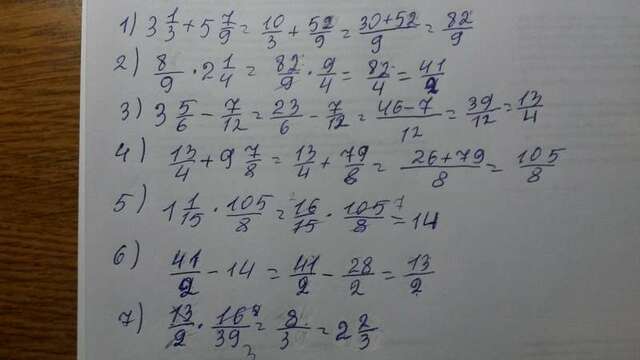 1) 3 1/3 + 5 7/9 = 10/3 + 52/9 = (30+52)/9 = 82/9
2) 8/9 · 2 1/4 = 82/9 · 9/4 = 82/4 = 41/2
3) 3 5/6 - 7/12 = 23/6 - 7/12 = (46-7)/12 = 39/12 = 13/4
4) 13/4 + 9 7/8 = 13/4 + 79/8 = (26+79)/8 = 105/8
5) 1 1/15 · 105/8 = 16/15 · 105/8 7 = 14
6) 41/2 - 14 = 41/2 - 28/2 = 13/2
7) 13/2 · 16 8/39 3 = 8/3 = 2 2/3